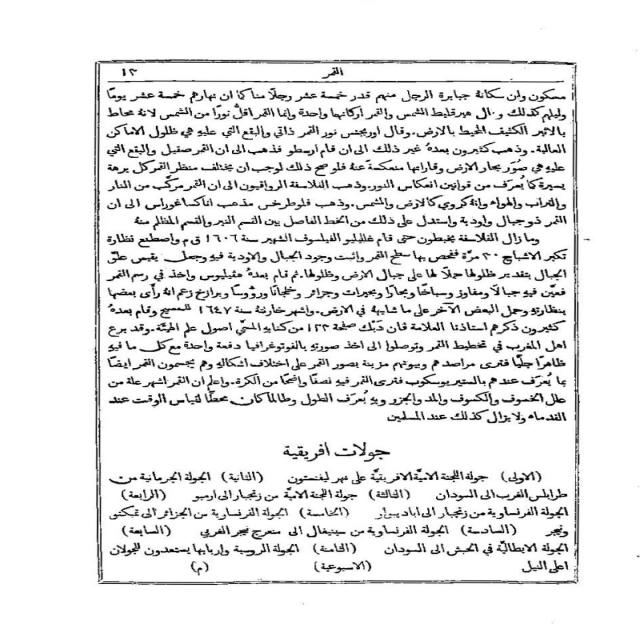 القمر ١٣
مسكون وان سكانة جبابرة الرجل منهم قدر خمسة عشر رجلًا مناكما ان نهارهم خمسة عشر يومًا
وليلهم كذلك وقال هيرقليط الشمس والقمر اركانها واحدة وإنما القمر اقلُّ نورًا من الشمس لانهُ محاط
بالاثير الكثيف المحيط بالارض. وقال اورجنس نور القمر ذاتي والبقع التي عليهِ هي ظلول الاماكن
العالية. وذهب كثيرون بعدهُ غير ذلك الى ان قام ارسطو فذهب الى ان القمر صقيل والبقع التي
عليهِ هي صُوَر بحار الارض وقاراتها منعكسة عنهُ فلو صح ذلك لوجب ان يختلف منظر القمر كل برهة
يسيرة كما يُعرَف من قوانين انعكاس النور. وذهب الفلاسفة الرواقيون الى ان القمر مركّب من النار
والتراب والهواء وانهُ كروي كالارض والشمس. وذهب فلوطرخس مذهب اناكساغوراس الى ان
القمر ذو جبال واودية واستدل على ذلك من الخط الفاصل بين القسم النير والقسم المظلم منهُ
وما زال الفلاسفة يخبطون حتى قام غليليو الفيلسوف الشهير سنة ١٦٠٦ ق م واصطنع نظارة
تكبر الاشباح ٣٠ مرَّة ففحص بها سطح القمر واثبت وجود الجبال والاودية فيهِ وجعل يقيس علوّ
الجبال بتقدير ظلولها حملًا لها على جبال الارض وظلولها. ثم قام بعدهُ هڤيليوس واخذ في رسم القمر
فعيّن فيهِ جبالًا ومفاوز وسباخًا وبحارًا وبحيرات وجزائر وخلجانًا ورؤوسًا وبرازخ زعم انهُ رأى بعضها
بنظارتهِ وحمل البعض الآخر على ما شابههُ في الارض. واشهر خارتتهُ سنة ١٦٤٧ للمسيح وقام بعدهُ
كثيرون ذكرهم استاذنا العلامة فان دَيك صفحة ١٢٣ من كتابهِ المسمّى اصول علم الهيئة. وقد برع
اهل المغرب في تخطيط القمر وتوصلوا الى اخذ صورتهِ بالفوتوغرافيا دفعة واحدة مع كل ما فيهِ
ظاهرًا جليًّا فترى مراصدهم وبيوتهم مزينة بصور القمر على اختلاف اشكالهِ وهم يجسمون القمر ايضًا
بما يُعرَف عندهم بالستيريوسكوب فترى القمر فيهِ نصفًا واضحًا من الكرة. واعلم ان القمر اشهر علة من
علل الخسوف والكسوف والمد والجزر وبهِ يُعرَف الطول وطالما كان محطًّا لقياس الوقت عند
القدماء ولا يزال كذلك عند المسلمين
جولات افريقية
(الاولى) جولة اللجنة الاممية الافريقيّة على نهر ليفنستون (الثانية) الجولة الجرمانية من
طرابلس الغرب الى السودان (الثالثة) جولة اللجنة الاممية من زنجبار الى (الرابعة)
الجولة الفرنساوية من زنجبار الى (الخامسة) الجولة الفرنساوية من الجزائر الى تمبكتو
ونيجر (السادسة) الجولة الفرنساوية من سينيغال الى منعرج نيجر الغربي (السابعة)
الجولة الايطاليَّة في الحبش الى السودان (الثامنة) الجولة الروسية واربابها يستعدون للجولان
اعلى النيل (الاسبوعية) (م)